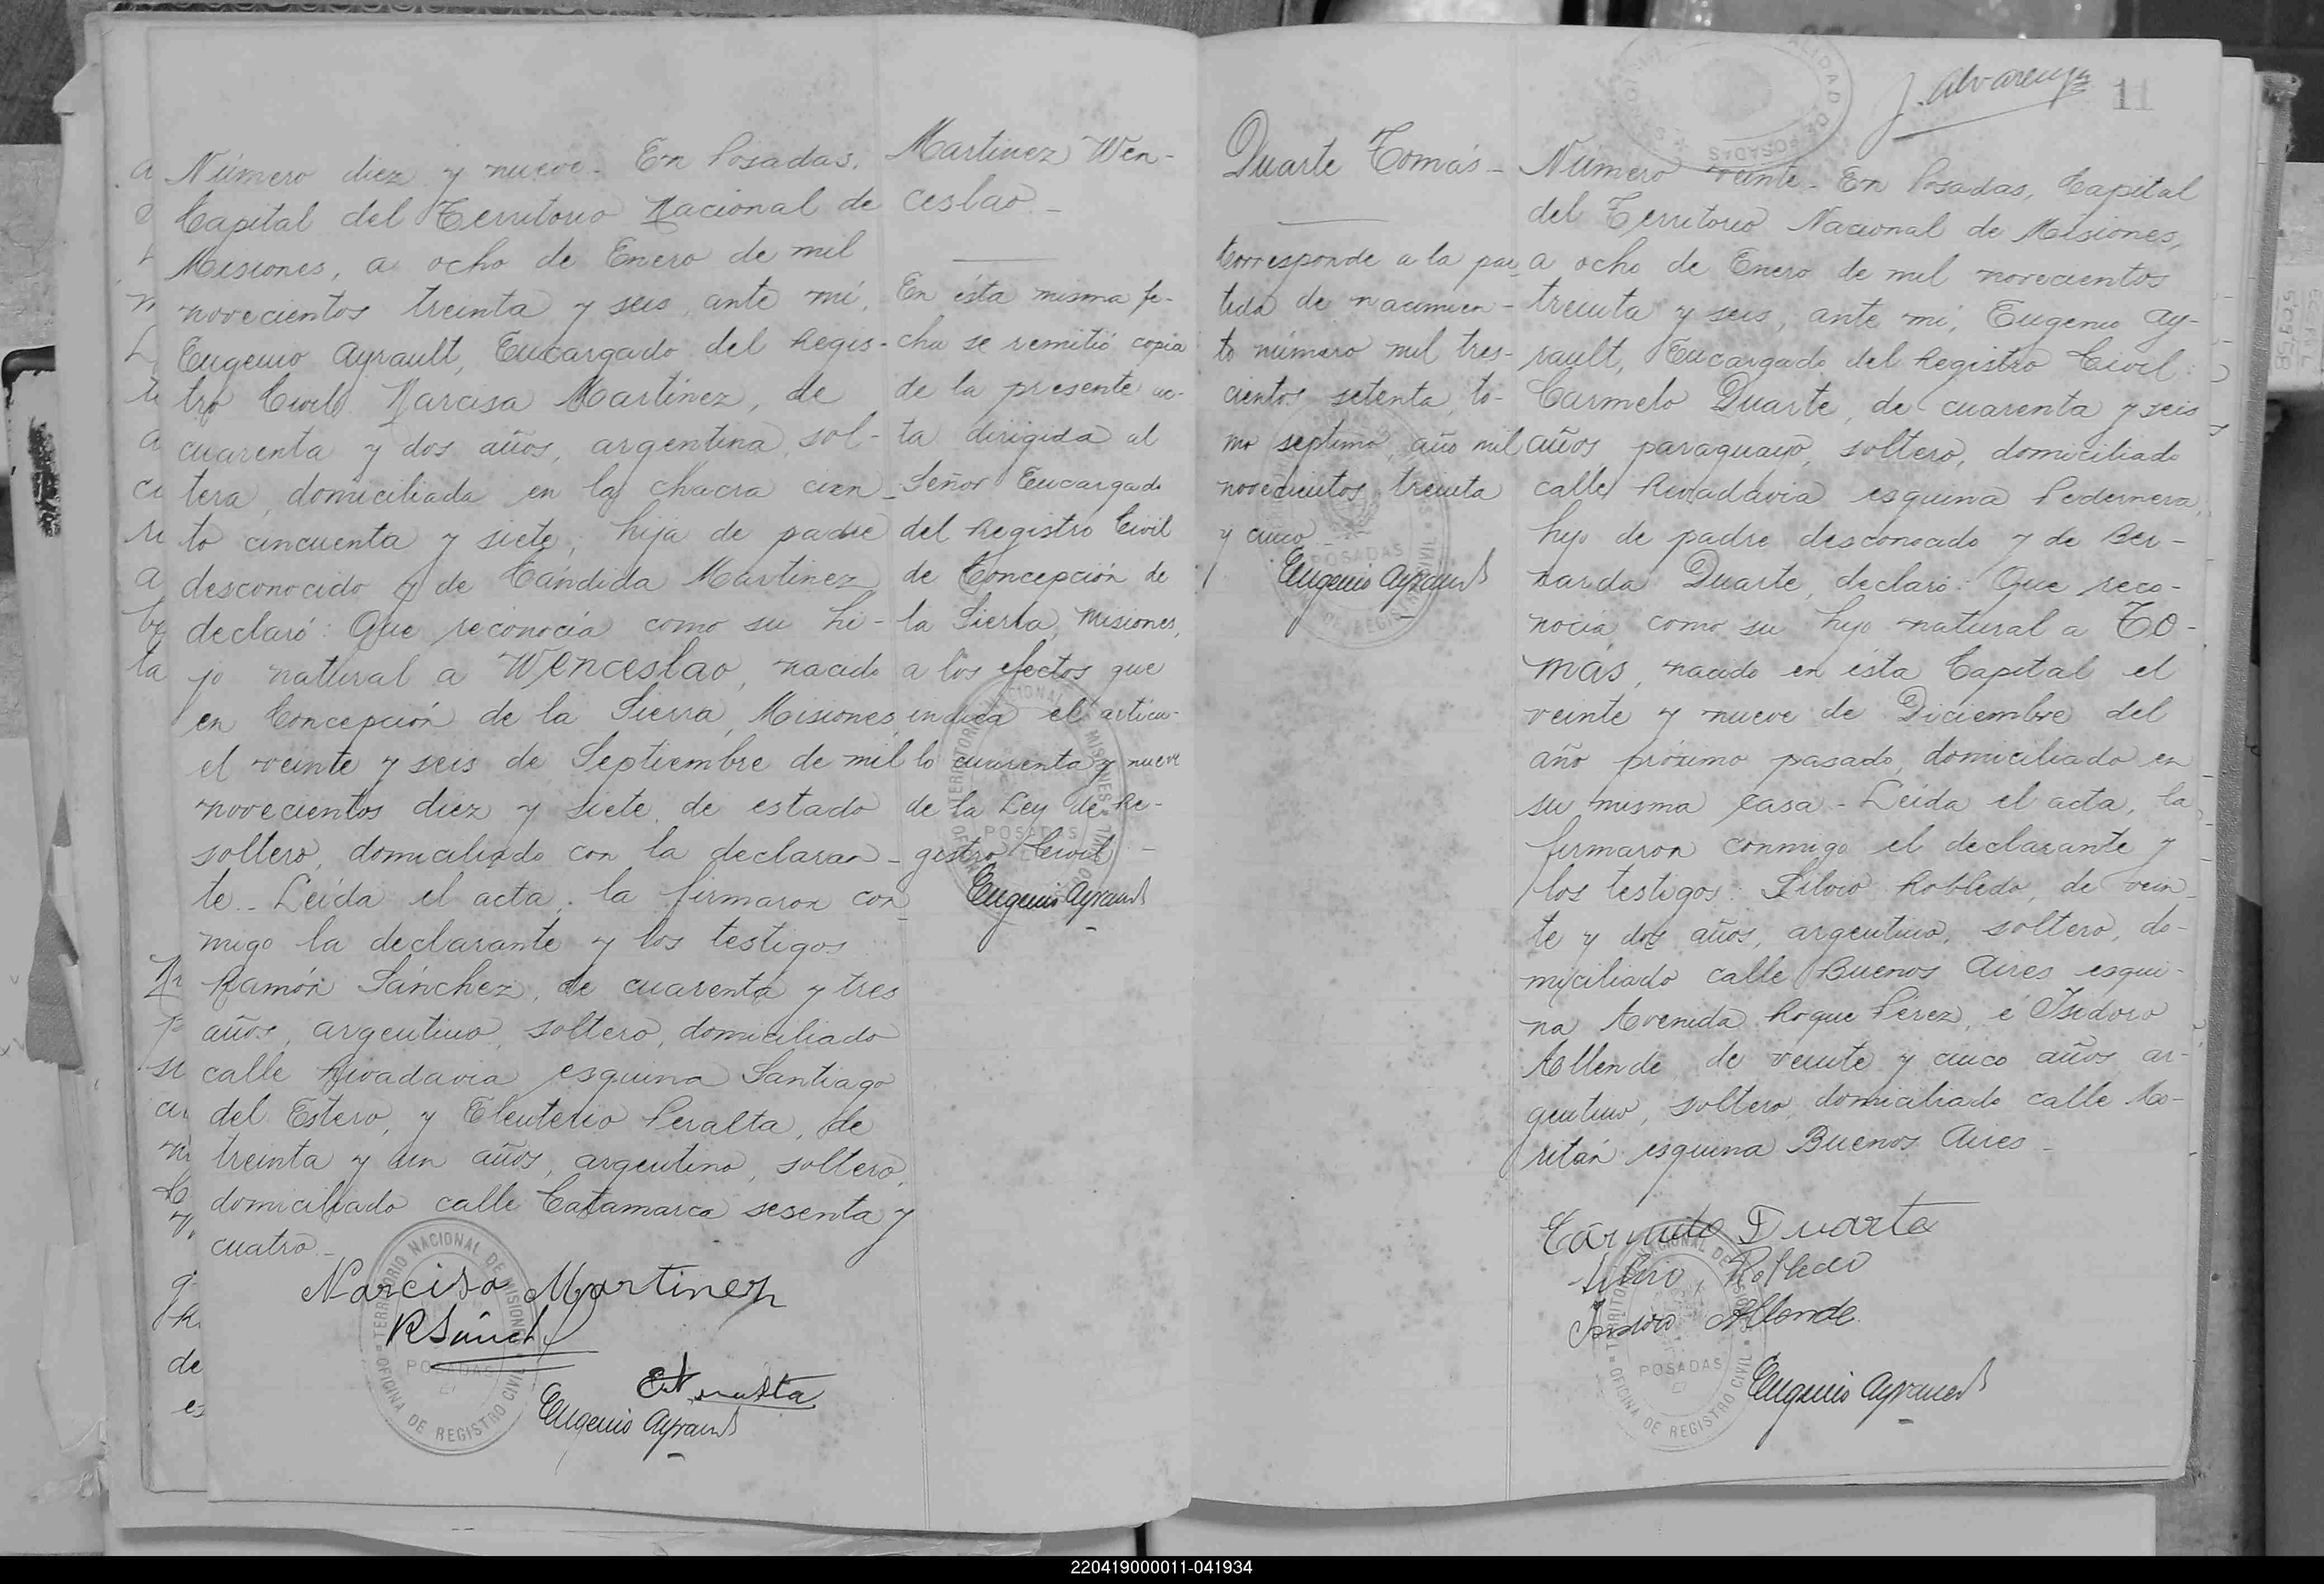 Número diez y nueve - En Posadas,
Capital del Territorio Nacional de
Misiones, a ocho de Enero de mil
novecientos treinta y seis, ante mí,
Eugenio Ayrault, Encargado del Regis-
tro Civil Narcisa Martínez, de
cuarenta y dos años, argentina, sol-
tera, domiciliada en la chacra cien-
to cincuenta y siete, hija de padre
desconocido y de Cándida Martinez
declaró: Que reconocía como su hi-
jo natural a Wenceslao, nacido
en Concepción de la Sierra, Misiones,
el veinte y seis de Septiembre de mil
novecientos diez y siete, de estado
soltero, domiciliado con la declaran-
te - Leída el acta, la firmaron con
migo la declarante y los testigos
Ramón Sánchez, de cuarenta y tres
años, argentino, soltero, domiciliado
calle Rivadavia esquina Santiago
del Estero, y Eleuterio Peralta, de
treinta y un años, argentino, soltero,
domiciliado calle Catamarca sesenta y
cuatro -
Narcisa Martinez
R Sánch
Eugenio Ayrault
TERRITORIO NACIONAL DE MISIONES
POSADAS
OFICINA DE REGISTRO CIVIL
Martinez Wen-
ceslao -
En ésta misma fe-
cha se remitió copia
de la presente ac-
ta dirigida al
Señor Encargado
del Registro Civil
de Concepción de
la Sierra, Misiones,
a los efectos que
indica el artícu-
lo cuarenta y nueve
de la Ley de Re-
gistro Civil -
Eugenio Ayrault
J. Alvarenga
11
Duarte Tomás -
Corresponde a la par
tida de nacimien-
to número mil tres-
cientos setenta, to-
mo septimo, año mil
novecientos treinta
y cinco -
Eugenio Ayrault
Número veinte - En Posadas, Capital
del Territorio Nacional de Misiones,
a ocho de Enero de mil novecientos
treinta y seis, ante mí, Eugenio Ay-
rault, Encargado del Registro Civil:
Carmelo Duarte, de cuarenta y seis
años paraguayo, soltero, domiciliado
calle Rivadavia esquina Pedernera,
hijo de padre desconocido y de Ber-
narda Duarte, declaró: Que reco-
nocía como su hijo natural a To-
más, nacido en ésta Capital el
veinte y nueve de Diciembre del
año próximo pasado, domiciliado en
su misma casa - Leída el acta, la
firmaron conmigo el declarante y
los testigos: Silvio Robledo, de vein
te y dos años, argentino, soltero, do-
miciliado calle Buenos Aires esqui-
na Avenida Roque Pérez, é Isidoro
Allende, de veinte y cinco años ar-
gentino, soltero, domiciliado calle Co-
ritán esquina Buenos Aires -
Carmelo Duarte
Silvio Robledo
Isidoro Allende
Eugenio Ayrault
TERRITORIO NACIONAL DE MISIONES
POSADAS
OFICINA DE REGISTRO CIVIL
220419000011-041934